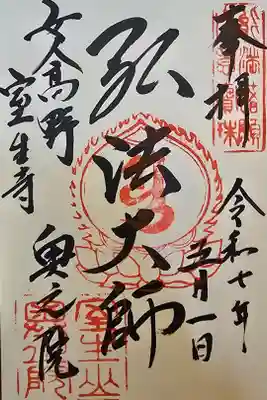 奉拝
令和七年
五月一日
弘法大師
女人高野
室生寺
奥之院
室生山